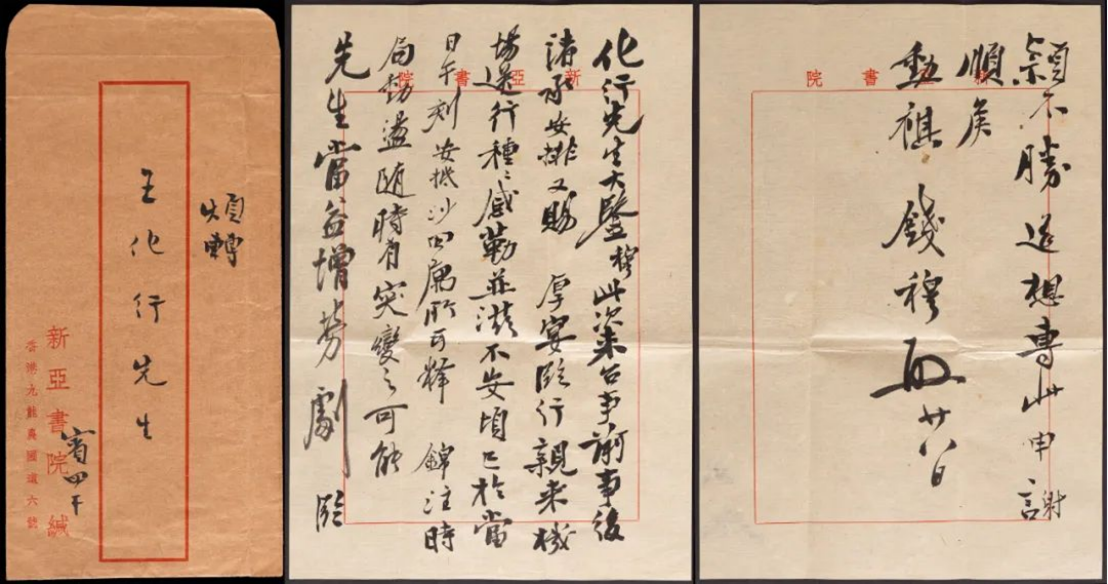 煩轉
王化行先生
新亞書院緘
賓四
香港九龍農圃道六號
新亞書院
化行先生大鑒穆此次來台事前事後
諸承安排又賜 厚宴臨行親來機
場送行種〻感勒並深不安頃已於當
日午刻安抵沙田寓所可釋 錦注時
局動盪隨時有突變之可能
先生當益增勞劇 臨
新亞書院
穎不勝遥想專此申謝
順矦
勳祺 錢穆 啟 廿八日